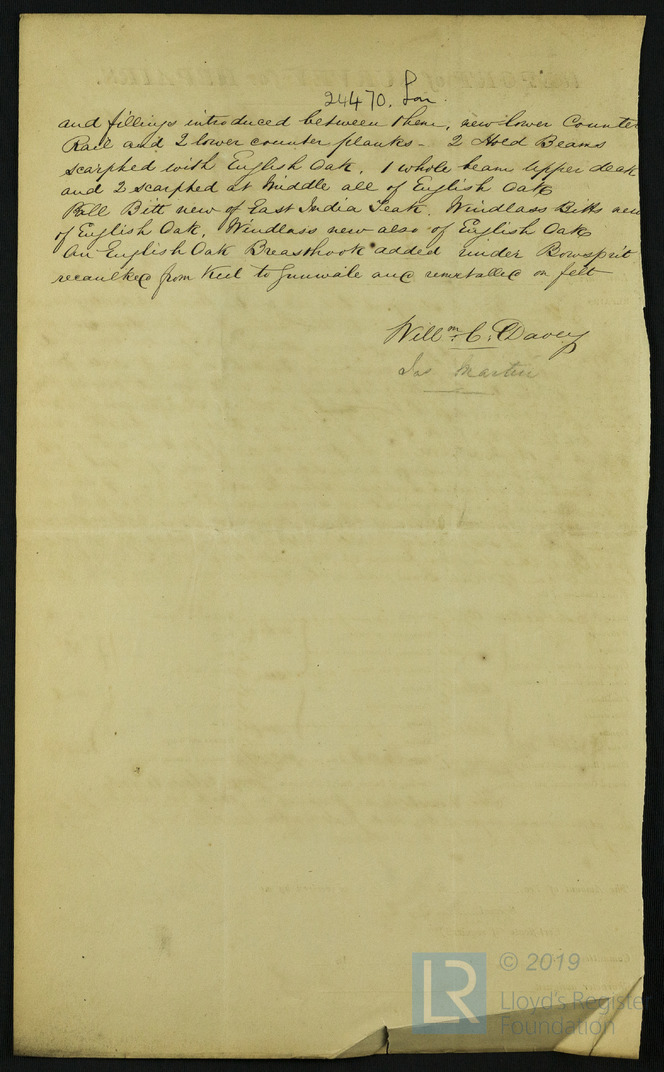 24470. Lon.
and fillings introduced between them, new lower Counter
Rail and 2 lower counter planks - 2 Hold Beams
scarphed with English Oak. 1 whole beam upper deck
and 2 scarphed at Middle all of English Oak
Pall Bitt new of East India Teak. Windlass Bitts new
of English Oak. Windlass new also of English Oak
An English Oak Breasthook added under Bowsprit
recaulked from Keel to Gunwale and remetalled on felt
Willm. C. Davey
Jas Martin
LR
© 2019
Lloyd's Register
Foundation